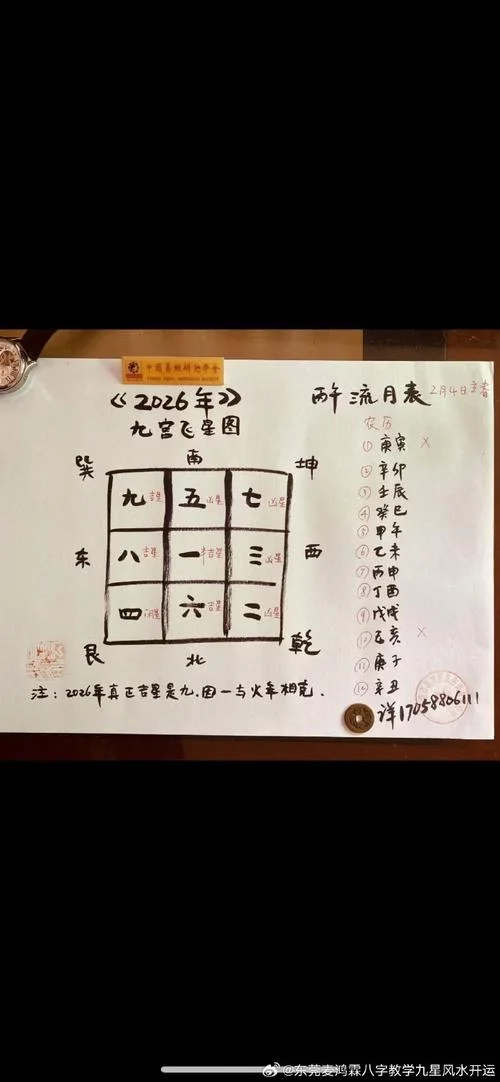 中国易经研究学会
《2026年》
九宫飞星图
巽 南 坤
九吉星 五凶星 七凶星
东 八吉星 一半吉星 三凶星 西
四 六吉星 二凶星
艮 北 乾
注：2026年真正吉星是九，因一与火年相克．
丙午流月表 2月4日立春
农历
① 庚寅 ×
② 辛卯
③ 壬辰
④ 癸巳
⑤ 甲午
⑥ 乙未
⑦ 丙申
⑧ 丁酉
⑨ 戊戌
⑩ 己亥 ×
⑪ 庚子
⑫ 辛丑
详17058806111
@东莞麦鸿霖八字教学九星风水开运